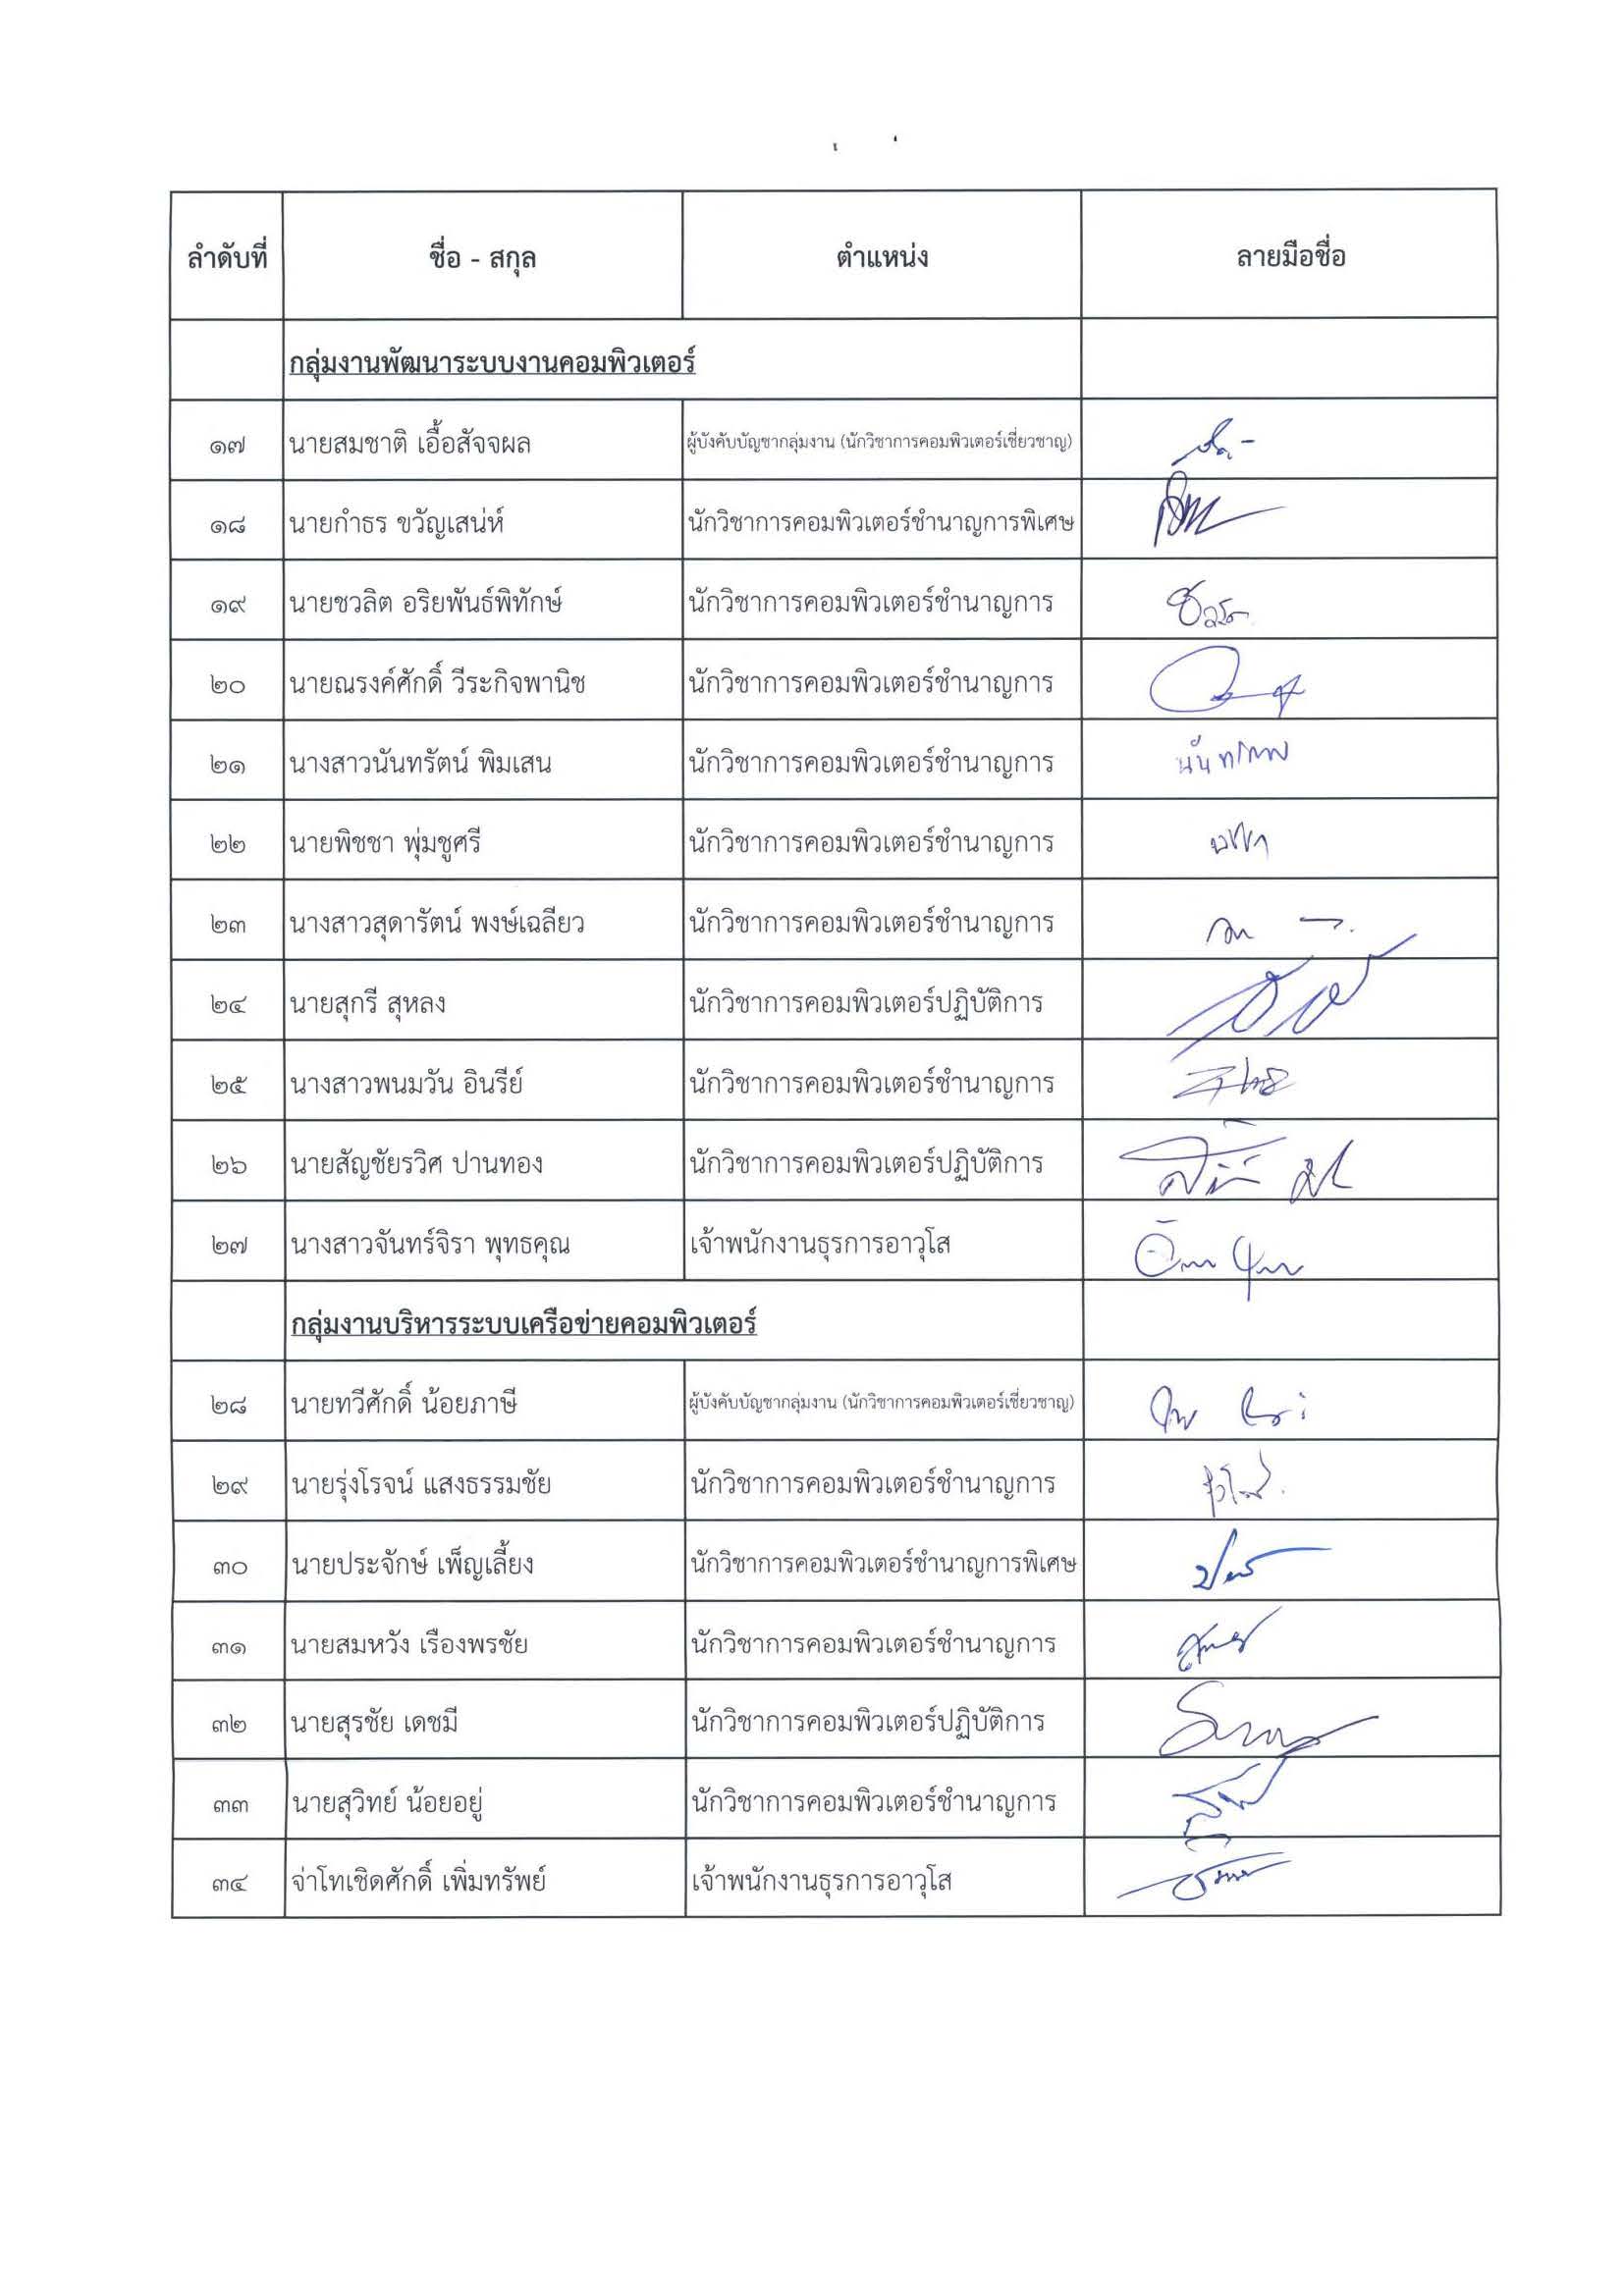 ลำดับที่ ชื่อ - สกุล ตำแหน่ง ลายมือชื่อ
กลุ่มงานพัฒนาระบบงานคอมพิวเตอร์
๑๗ นายสมชาติ เอื้อสัจจผล ผู้บังคับบัญชากลุ่มงาน (นักวิชาการคอมพิวเตอร์เชี่ยวชาญ)
๑๘ นายกำธร ขวัญเสน่ห์ นักวิชาการคอมพิวเตอร์ชำนาญการพิเศษ
๑๙ นายชวลิต อริยพันธ์พิทักษ์ นักวิชาการคอมพิวเตอร์ชำนาญการ
๒๐ นายณรงค์ศักดิ์ วีระกิจพานิช นักวิชาการคอมพิวเตอร์ชำนาญการ
๒๑ นางสาวนันทรัตน์ พิมเสน นักวิชาการคอมพิวเตอร์ชำนาญการ
๒๒ นายพิชชา พุ่มชูศรี นักวิชาการคอมพิวเตอร์ชำนาญการ
๒๓ นางสาวสุดารัตน์ พงษ์เฉลียว นักวิชาการคอมพิวเตอร์ชำนาญการ
๒๔ นายสุกรี สุหลง นักวิชาการคอมพิวเตอร์ปฏิบัติการ
๒๕ นางสาวพนมวัน อินรีย์ นักวิชาการคอมพิวเตอร์ชำนาญการ
๒๖ นายสัญชัยรวิศ ปานทอง นักวิชาการคอมพิวเตอร์ปฏิบัติการ
๒๗ นางสาวจันทร์จิรา พุทธคุณ เจ้าพนักงานธุรการอาวุโส
กลุ่มงานบริหารระบบเครือข่ายคอมพิวเตอร์
๒๘ นายทวีศักดิ์ น้อยภาษี ผู้บังคับบัญชากลุ่มงาน (นักวิชาการคอมพิวเตอร์เชี่ยวชาญ)
๒๙ นายรุ่งโรจน์ แสงธรรมชัย นักวิชาการคอมพิวเตอร์ชำนาญการ
๓๐ นายประจักษ์ เพ็ญเลี้ยง นักวิชาการคอมพิวเตอร์ชำนาญการพิเศษ
๓๑ นายสมหวัง เรืองพรชัย นักวิชาการคอมพิวเตอร์ชำนาญการ
๓๒ นายสุรชัย เดชมี นักวิชาการคอมพิวเตอร์ปฏิบัติการ
๓๓ นายสุวิทย์ น้อยอยู่ นักวิชาการคอมพิวเตอร์ชำนาญการ
๓๔ จ่าโทเชิดศักดิ์ เพิ่มทรัพย์ เจ้าพนักงานธุรการอาวุโส